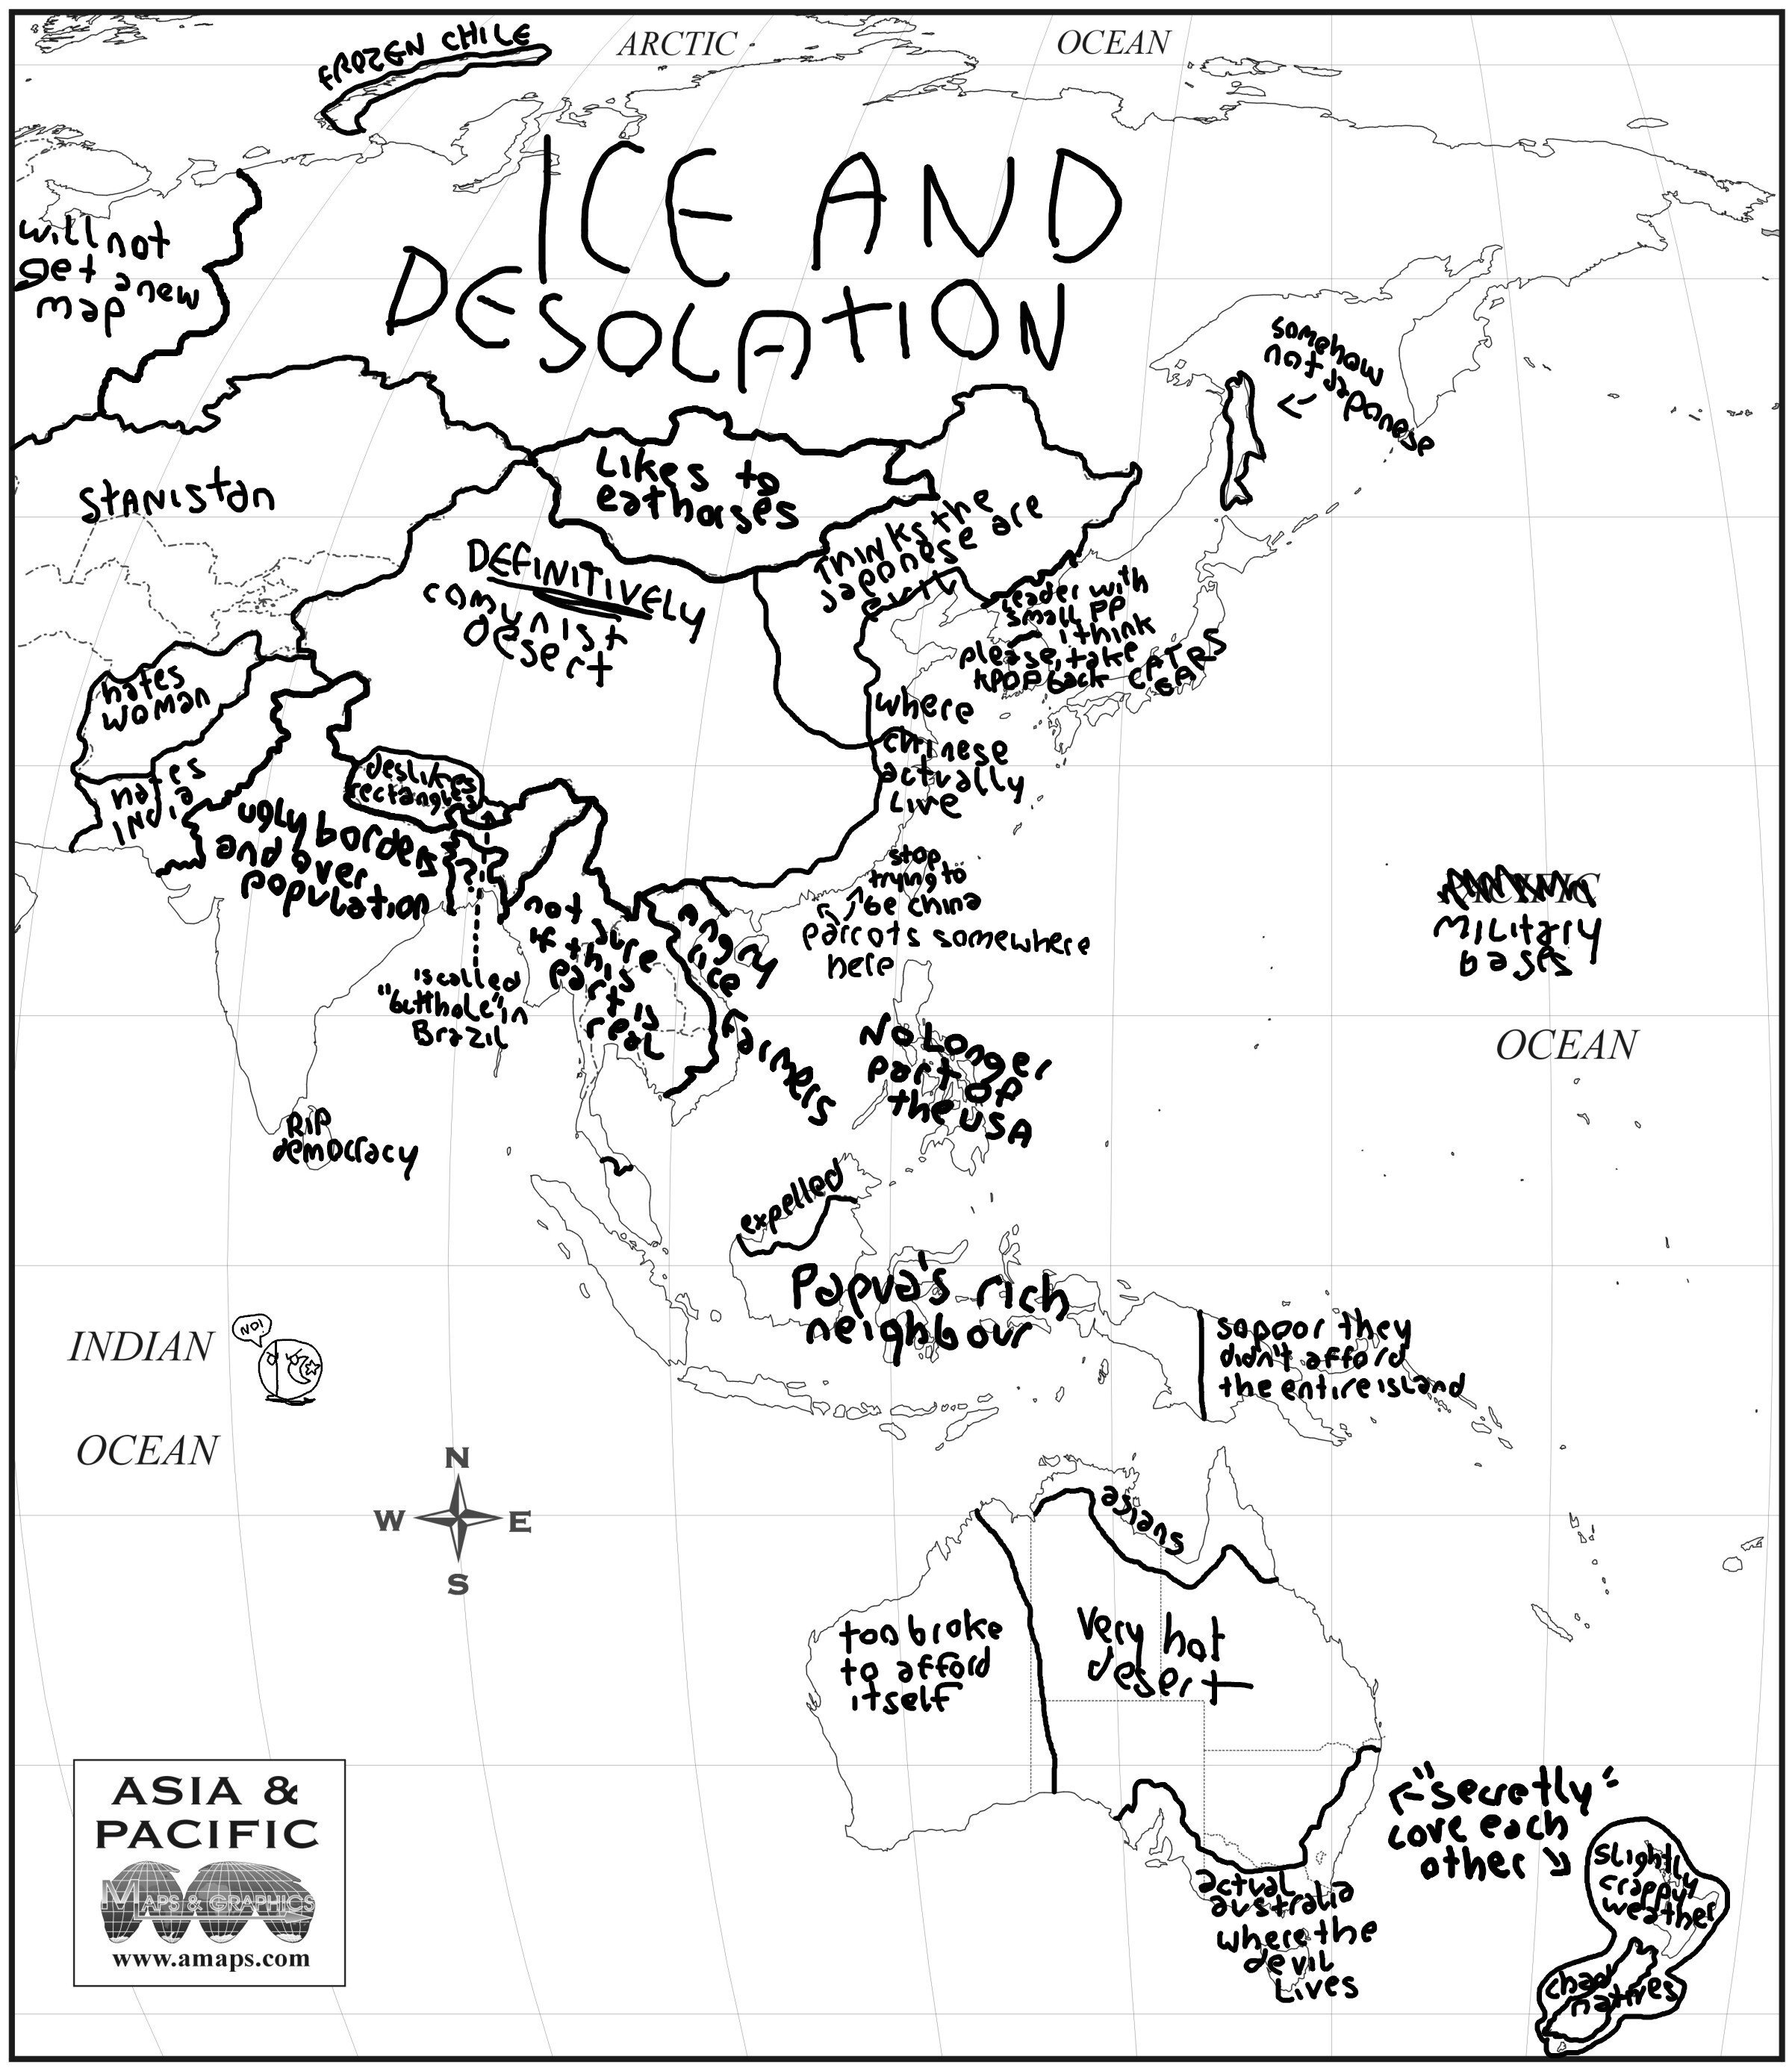 FROZEN CHILE
ARCTIC
OCEAN
ICE AND
DESOLATION
will not
get a new
map
somehow
not Japanese
STANISTAN
Likes to
eat horses
THINKS the
Japanese are
evil
DEFINITIVELY
comunist
desert
Leader with
small PP
I think
please, take
KPOP back
CATGR
hates
woman
where
chinese
actually
Live
hates
INDIA
deslikes
rectangles
ugly borders
and over
population
?
stop
trying to
be china
parrots somewhere
here
not sure
if this
part is
real
angry
rice
farmers
is called
"butthole" in
Brazil
military
bases
OCEAN
No Longer
part of
the USA
RIP
democracy
expelled
Papua's rich
neighbour
INDIAN
NO!
OCEAN
so poor they
didn't afford
the entire island
N
W E
S
asians
too broke
to afford
itself
Very hot
desert
ASIA &
PACIFIC
MAPS & GRAPHICS
www.amaps.com
"secretly"
love each
other
slightly
crappy
weather
actual
australia
where the
devil
Lives
chad
natives